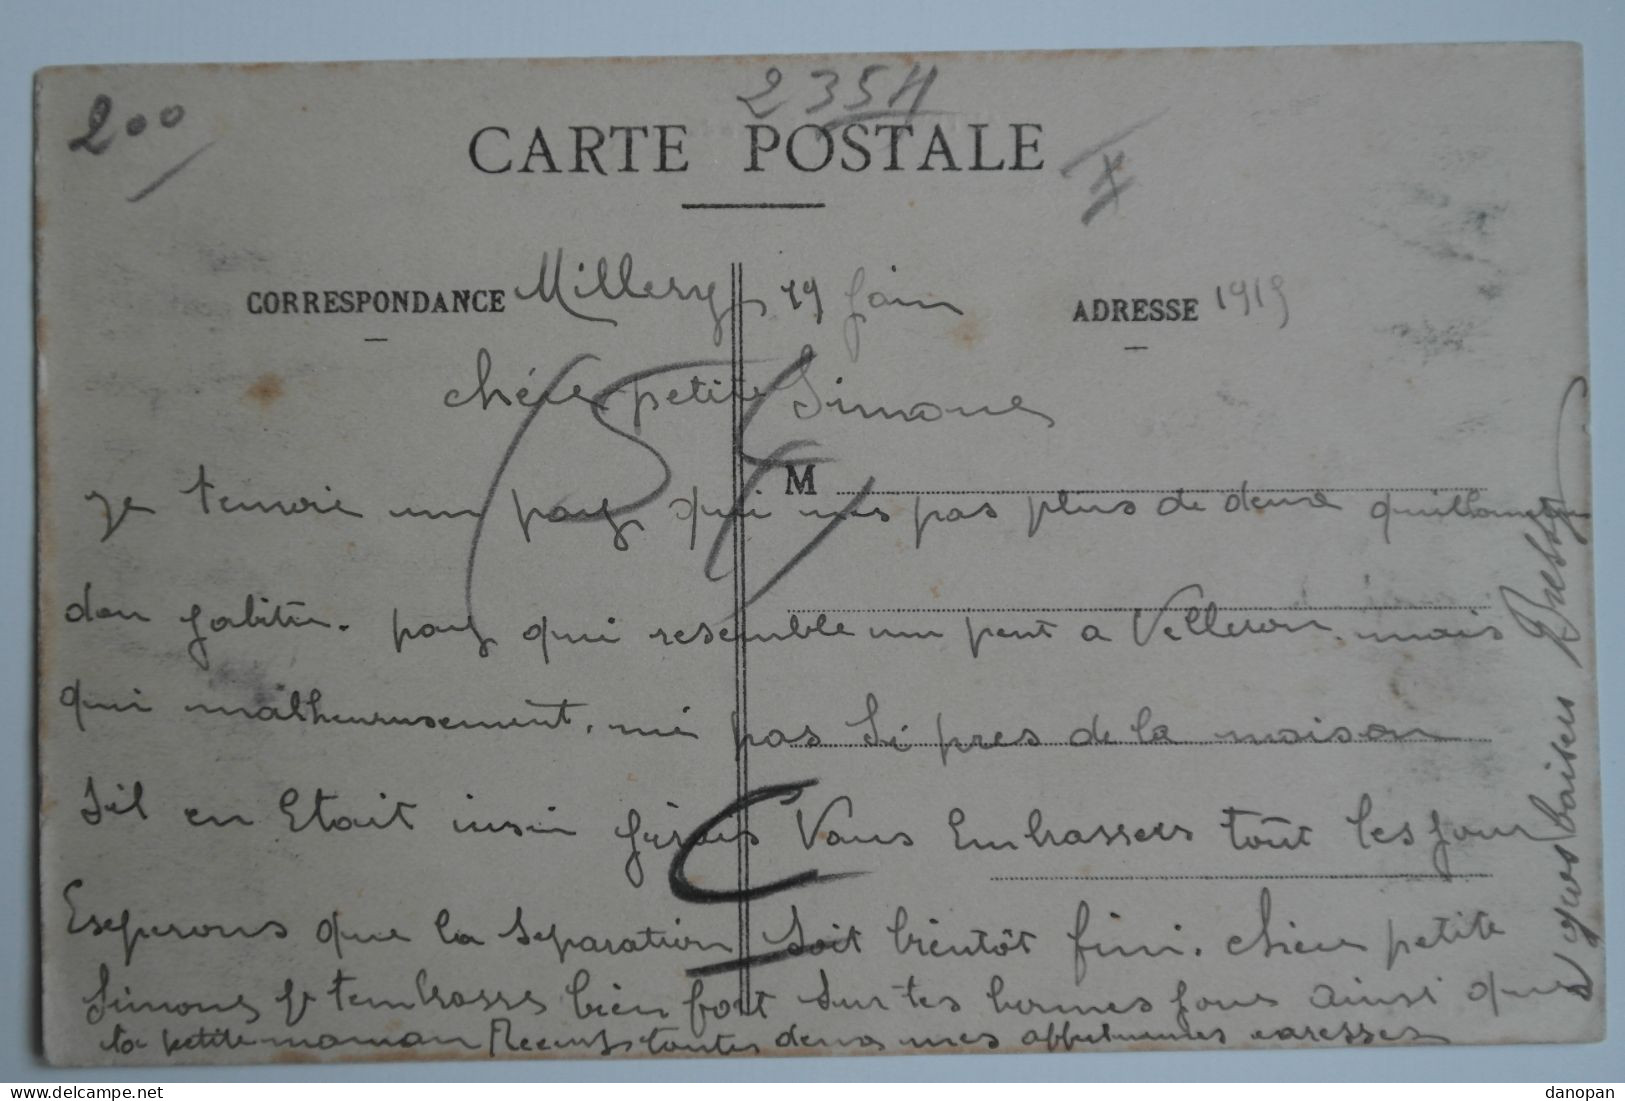 200
235H
CARTE POSTALE
CORRESPONDANCE Millery 19 Juin ADRESSE 1919
chére petite Simone
M
Je tenvoie un pays qui nes pas plus de deux
don jabite. pays qui resemble un peut a Velleron, mais
qui malheureusement. né pas Si pres de la maison
Sil en Etait insin jérais Vous Embrasser tout les jour
Esperons que la Separation Soit bientôt fini. chére petite
Simone Je tembrasse bien fort Sur tes bonnes joues ainsi que
ta petite maman Recevez toutes deux mes affectueuses caresses
baisers
danopan